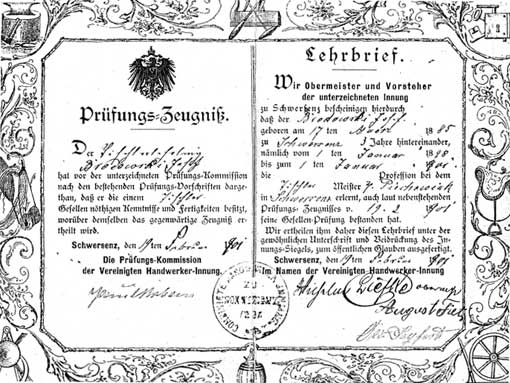 Prüfungs-Zeugniß.
Der Tischlerlehrling
Brodowski Josef
hat vor der unterzeichneten Prüfungs-Kommission
nach den bestehenden Prüfungs-Vorschriften dargethan,
daß er die einem Tischler
Gesellen nöthigen Kenntnisse und Fertigkeiten besitzt,
worüber demselben das gegenwärtige Zeugniß ertheilt
wird.
Schwersenz, den 19ten Februar 1901
Die Prüfungs-Kommission
der Vereinigten Handwerker-Innung.
Lehrbrief.
Wir Obermeister und Vorsteher
der unterzeichneten Innung
zu Schwersenz bescheinigen hierdurch
daß der Brodowski Josef
geboren am 17 ten 1885
zu Schwersenz 3 Jahre hintereinander,
nämlich vom 1 ten Januar 1898
bis zum 1 ten Januar 1901 die
Profession bei dem
Tischler Meister
in Schwersenz erlernt, auch laut nebenstehenden
Prüfungs-Zeugnisses v. 19. 2 1901
seine Gesellen-Prüfung bestanden hat.
Wir ertheilen ihm daher diesen Lehrbrief unter der
gewöhnlichen Unterschrift und Beidrückung des Innungs-Siegels,
zum öffentlichen Glauben ausgefertigt.
Schwersenz, den 19ten Februar 1901
Im Namen der Vereinigten Handwerker-Innung
August